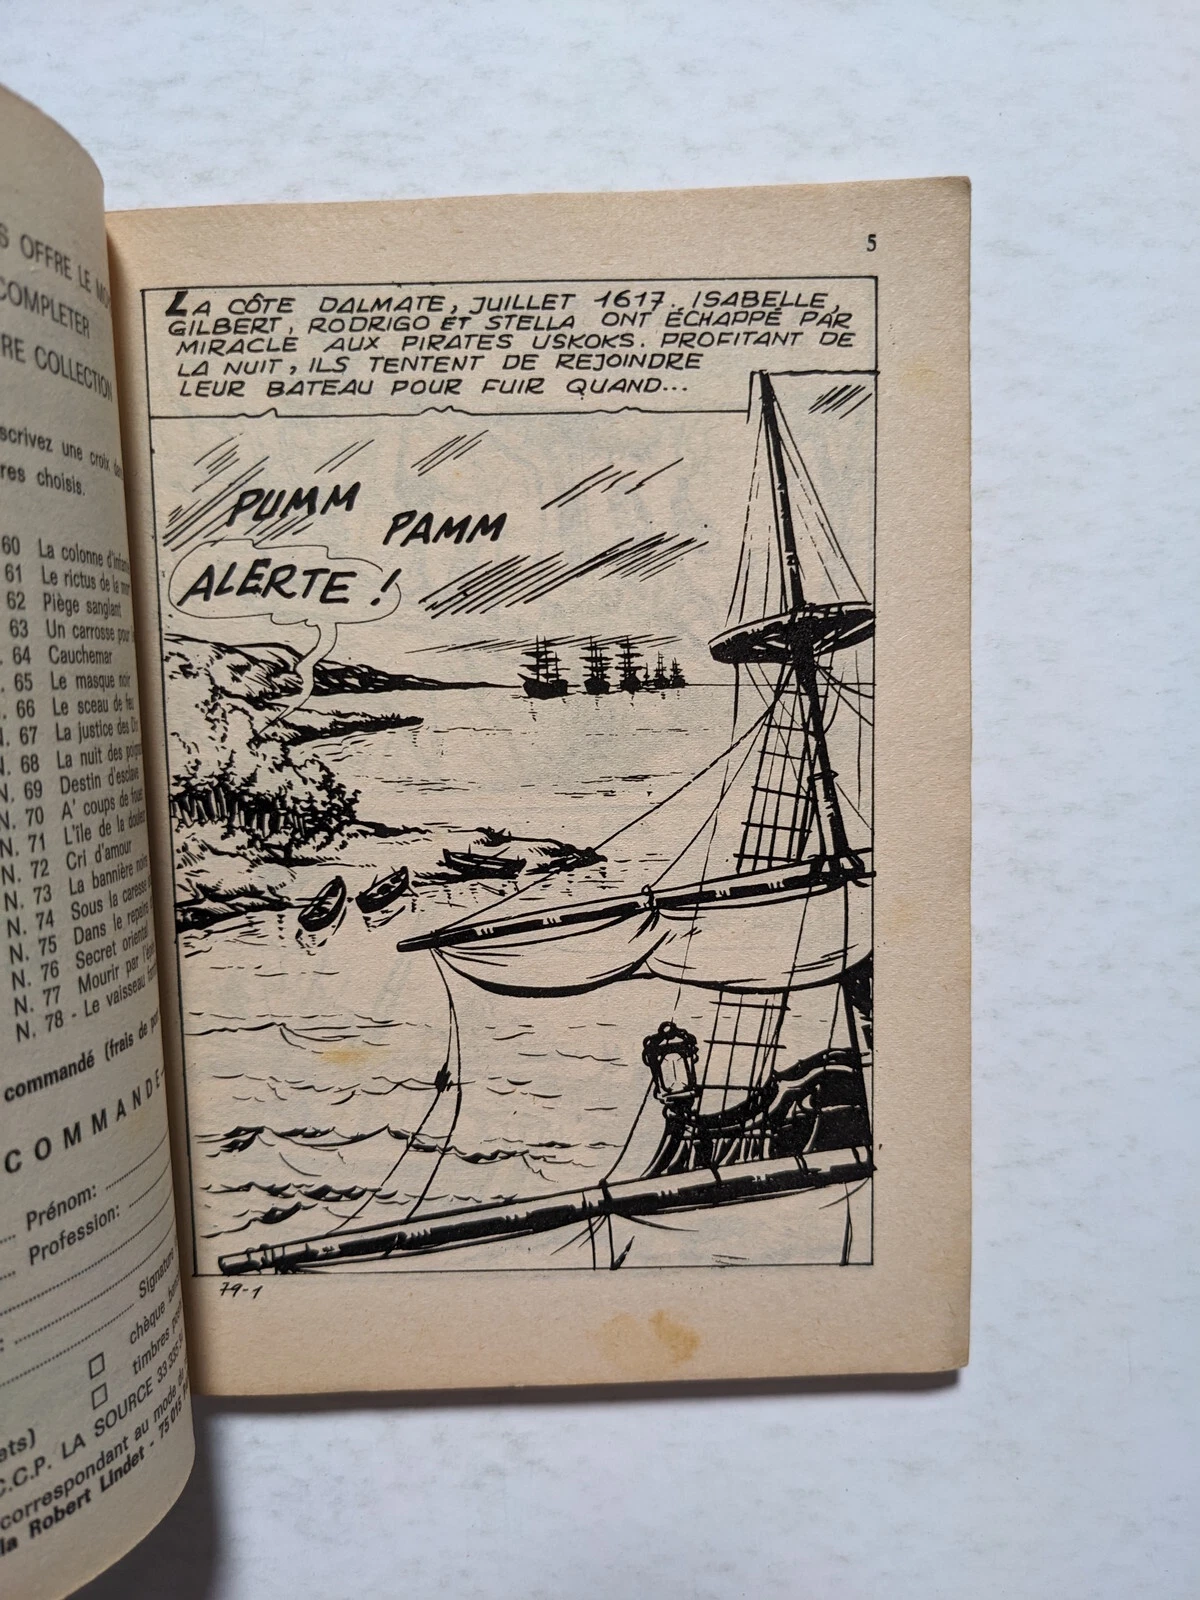 S OFFRE LE
COMPLETER
RE COLLECTION
scrivez une croix
res choisis.
60 La colonne
61 Le rictus de la
62 Piège sanglant
63 Un carrosse
. 64 Cauchemar
. 65 Le masque noir
. 66 Le sceau de
N. 67 La justice des
N. 68 La nuit des
N. 69 Destin d'esclave
N. 70 A' coups de
N. 71 L'île de la
N. 72 Cri d'amour
N. 73 La bannière noire
N. 74 Sous la caresse
N. 75 Dans le repaire
N. 76 Secret oriental
N. 77 Mourir par
N. 78 - Le vaisseau
commandé (frais de
COMMANDE
Prénom:
Profession:
Signature
chèque
timbres
ets)
C.C.P. LA SOURCE 33 335
correspondant au mode de
la Robert Lindet - 75 015
5
LA CÔTE DALMATE, JUILLET 1617. ISABELLE,
GILBERT, RODRIGO ET STELLA ONT ÉCHAPPÉ PAR
MIRACLE AUX PIRATES USKOKS. PROFITANT DE
LA NUIT, ILS TENTENT DE REJOINDRE
LEUR BATEAU POUR FUIR QUAND...
PUMM
PAMM
ALERTE !
79-1